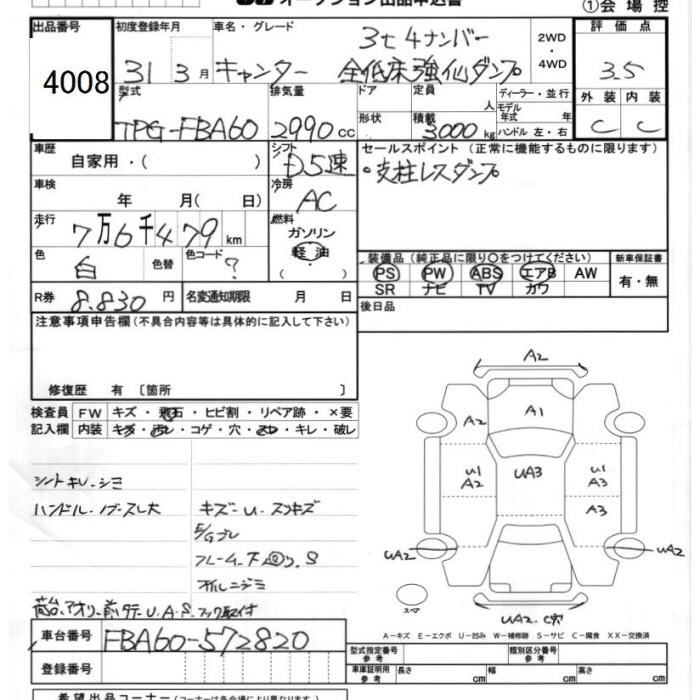 オークション出品申込書
①会場控
出品番号
4008
初度登録年月
31 3月
車名・グレード
3t 4ナンバー
キャンター 全低床強化ダンプ
2WD
・
4WD
評価点
3.5
外装 内装
C C
型式
TPG-FBA60
排気量
2990cc
ドア
形状
定員
人
積載
3000kg
ディーラー・並行
モデル
年式 年
ハンドル 左・右
車歴
自家用・( )
シフト
D5速
セールスポイント(正常に機能するものに限ります)
・支柱レスダンプ
車検
年 月( 日)
冷房
AC
走行
7万6千479km
燃料
ガソリン
軽油
色
白
色替
色コード
?
装備品(純正品に限り○をつけてください)
PS PW ABS エアB AW
SR ナビ TV カワ
新車保証書
有・無
R券
8.830円
名変通知期限 月 日
後日品
注意事項申告欄(不具合内容等は具体的に記入して下さい)
修復歴 有〔箇所 〕
検査員
記入欄
FW キズ・飛石・ヒビ割・リペア跡・×要
内装 キズ・汚レ・コゲ・穴・・キレ・破レ
シートキレ・シミ
ハンドル・ノブ・スレ大
キズ・U・スリキズ
フレーム・下S
オイルニジミ
荷台・アオリ・U・A・S・フック取付
A2
A2
A1
U1
A2
UA3
U1
A3
A3
UA2
UA2
スペア
UA2
A-キズ E-エクボ U-凹み W-補修跡 S-サビ C-腐食 XX-交換済
車台番号
FBA60-572820
登録番号
型式指定番号
参考
類別区分番号
参考
車庫証明用
参考
長さ cm
幅 cm
高さ cm
希望出品コーナー(コーナーは各会場により異なります)